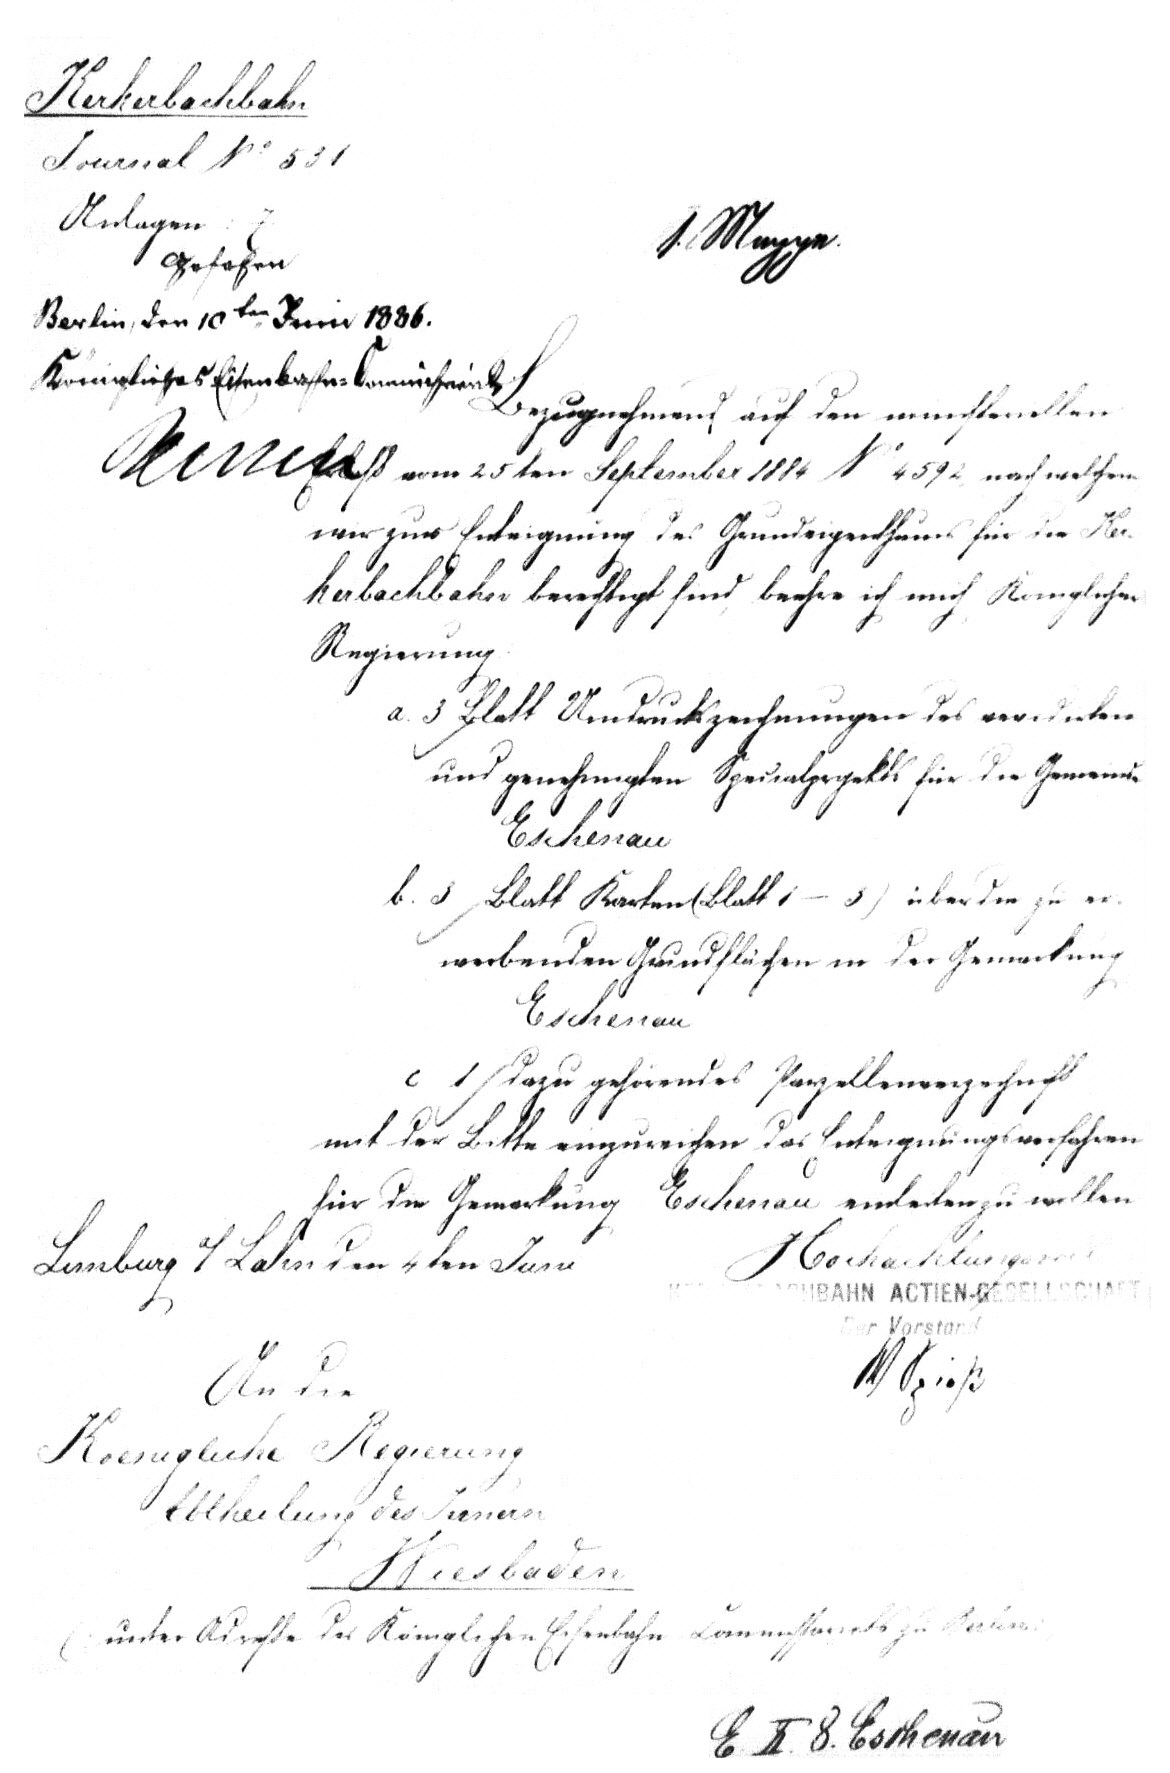 Kerkerbachbahn
Journal No 531
Anlagen: 7
1. Mappe.
Gesehen
Berlin, den 10ten Juni 1886.
Königliches Eisenbahn-Commissariat
Bezugnehmend auf den ministeriellen
Erlaß vom 25ten September 1884 No 4592 nach welchem
wir zur Enteignung des Grundeigenthums für die Ker-
kerbachbahn berechtigt sind, beehre ich mich Königlicher
Regierung
a. 3 Blatt Umdruckzeichnungen des revidirten
und genehmigten Specialprojekts für die Gemeinde
Eschenau
b. 3 Blatt Karten (Blatt 1 – 3) über die zu er-
werbenden Grundflächen in der Gemarkung
Eschenau
c 1 dazu gehörendes Parzellenverzeichniß
mit der Bitte einzureichen das Enteignungsverfahren
für die Gemarkung Eschenau einleiten zu wollen
Limburg a/ Lahn den 4ten Juni
Hochachtungsvoll
KERKERBACHBAHN ACTIEN-GESELLSCHAFT
Der Vorstand
W Spieß
An die
Koenigliche Regierung
Abtheilung des Innern
Wiesbaden
(: unter Adresse des Königlichen Eisenbahn Commissariats zu Berlin :)
E. II. 8. Eschenau